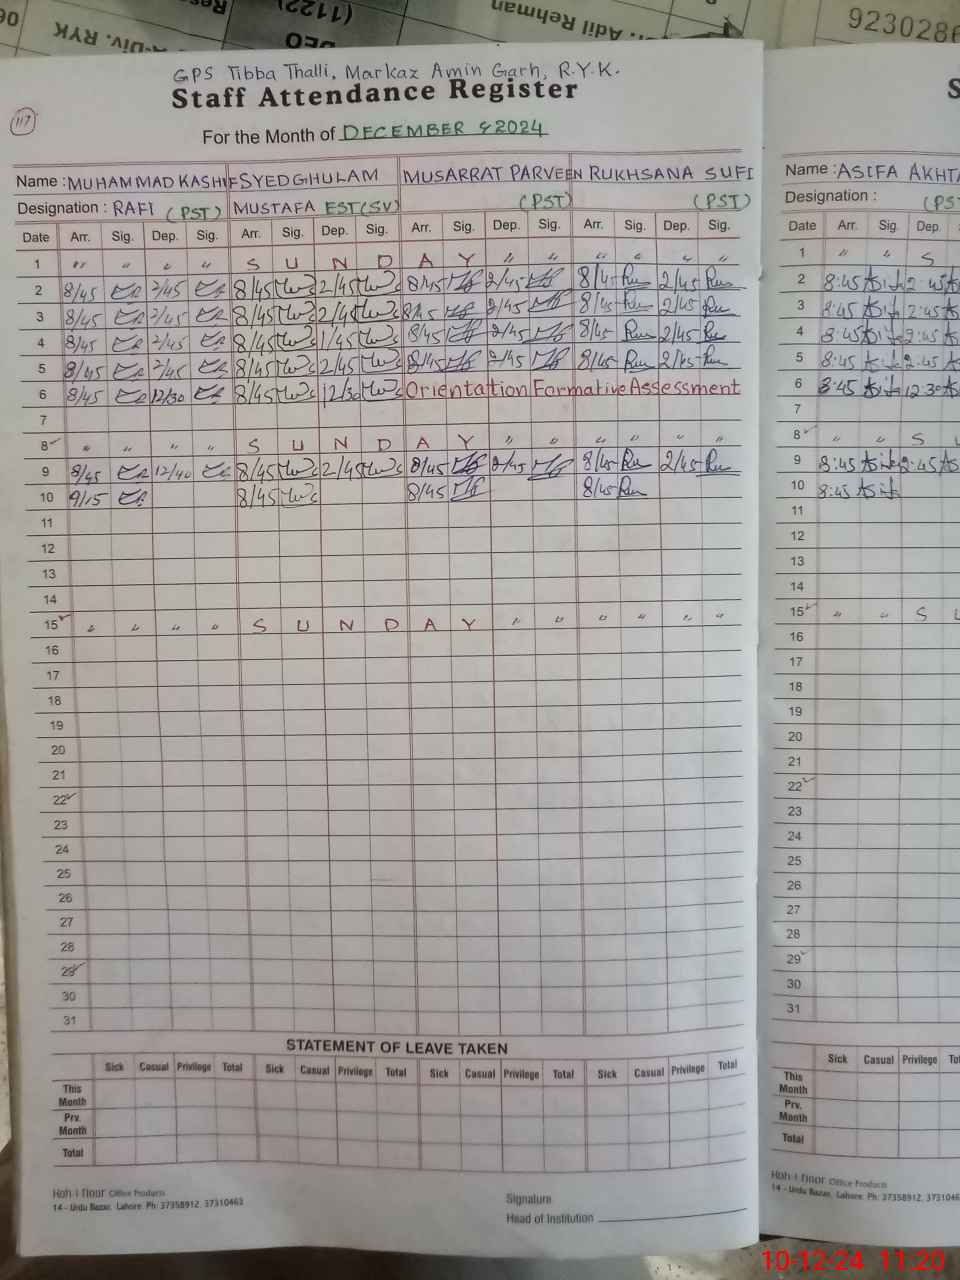 (1122)
DEO
Adil Rehman
Div. RYK
9230286
GPS Tibba Thalli, Markaz Amin Garh, R.Y.K.
Staff Attendance Register
117
For the Month of DECEMBER 2024
Name : MUHAMMAD KASHIF SYED GHULAM MUSARRAT PARVEEN RUKHSANA SUFI
Designation : RAFI (PST) MUSTAFA EST(SV) (PST) (PST)
Date Arr. Sig. Dep. Sig. Arr. Sig. Dep. Sig. Arr. Sig. Dep. Sig. Arr. Sig. Dep. Sig.
1 " " " " S U N D A Y " " " " " "
2 8/45 2/45 8/45 2/45 8/45 2/45 8/45 2/45
3 8/45 2/45 8/45 2/45 8/45 2/45 8/45 2/45
4 8/45 2/45 8/45 1/45 8/45 2/45 8/45 2/45
5 8/45 2/45 8/45 2/45 8/45 2/45 8/45 2/45
6 8/45 12/30 8/45 12/30 Orientation Formative Assessment
7
8 " " " " S U N D A Y " " " " " "
9 8/45 12/40 8/45 2/45 8/45 2/45 8/45 2/45
10 9/15 8/45 8/45 8/45
11
12
13
14
15 " " " " S U N D A Y " " " " " "
16
17
18
19
20
21
22
23
24
25
26
27
28
29
30
31
STATEMENT OF LEAVE TAKEN
Sick Casual Privilege Total Sick Casual Privilege Total Sick Casual Privilege Total Sick Casual Privilege Total
This Month
Prv. Month
Total
Koh-i-Noor Office Products
14 - Urdu Bazar, Lahore. Ph: 37358912, 37310463
Signature
Head of Institution
S
Name : ASIFA AKHTA
Designation : (PS
Date Arr. Sig. Dep.
1 " " S
2 8:45 Asifa 2:45
3 8:45 Asifa 2:45
4 8:45 Asifa 2:45
5 8:45 Asifa 2:45
6 8:45 Asifa 12:30
7
8 " " S U
9 8:45 Asifa 2:45
10 8:45 Asifa
11
12
13
14
15 " " S U
16
17
18
19
20
21
22
23
24
25
26
27
28
29
30
31
Sick Casual Privilege To
This Month
Prv. Month
Total
Koh-i-Noor Office Products
14 - Urdu Bazar, Lahore. Ph: 37358912, 3731046
10-12-24 11:20